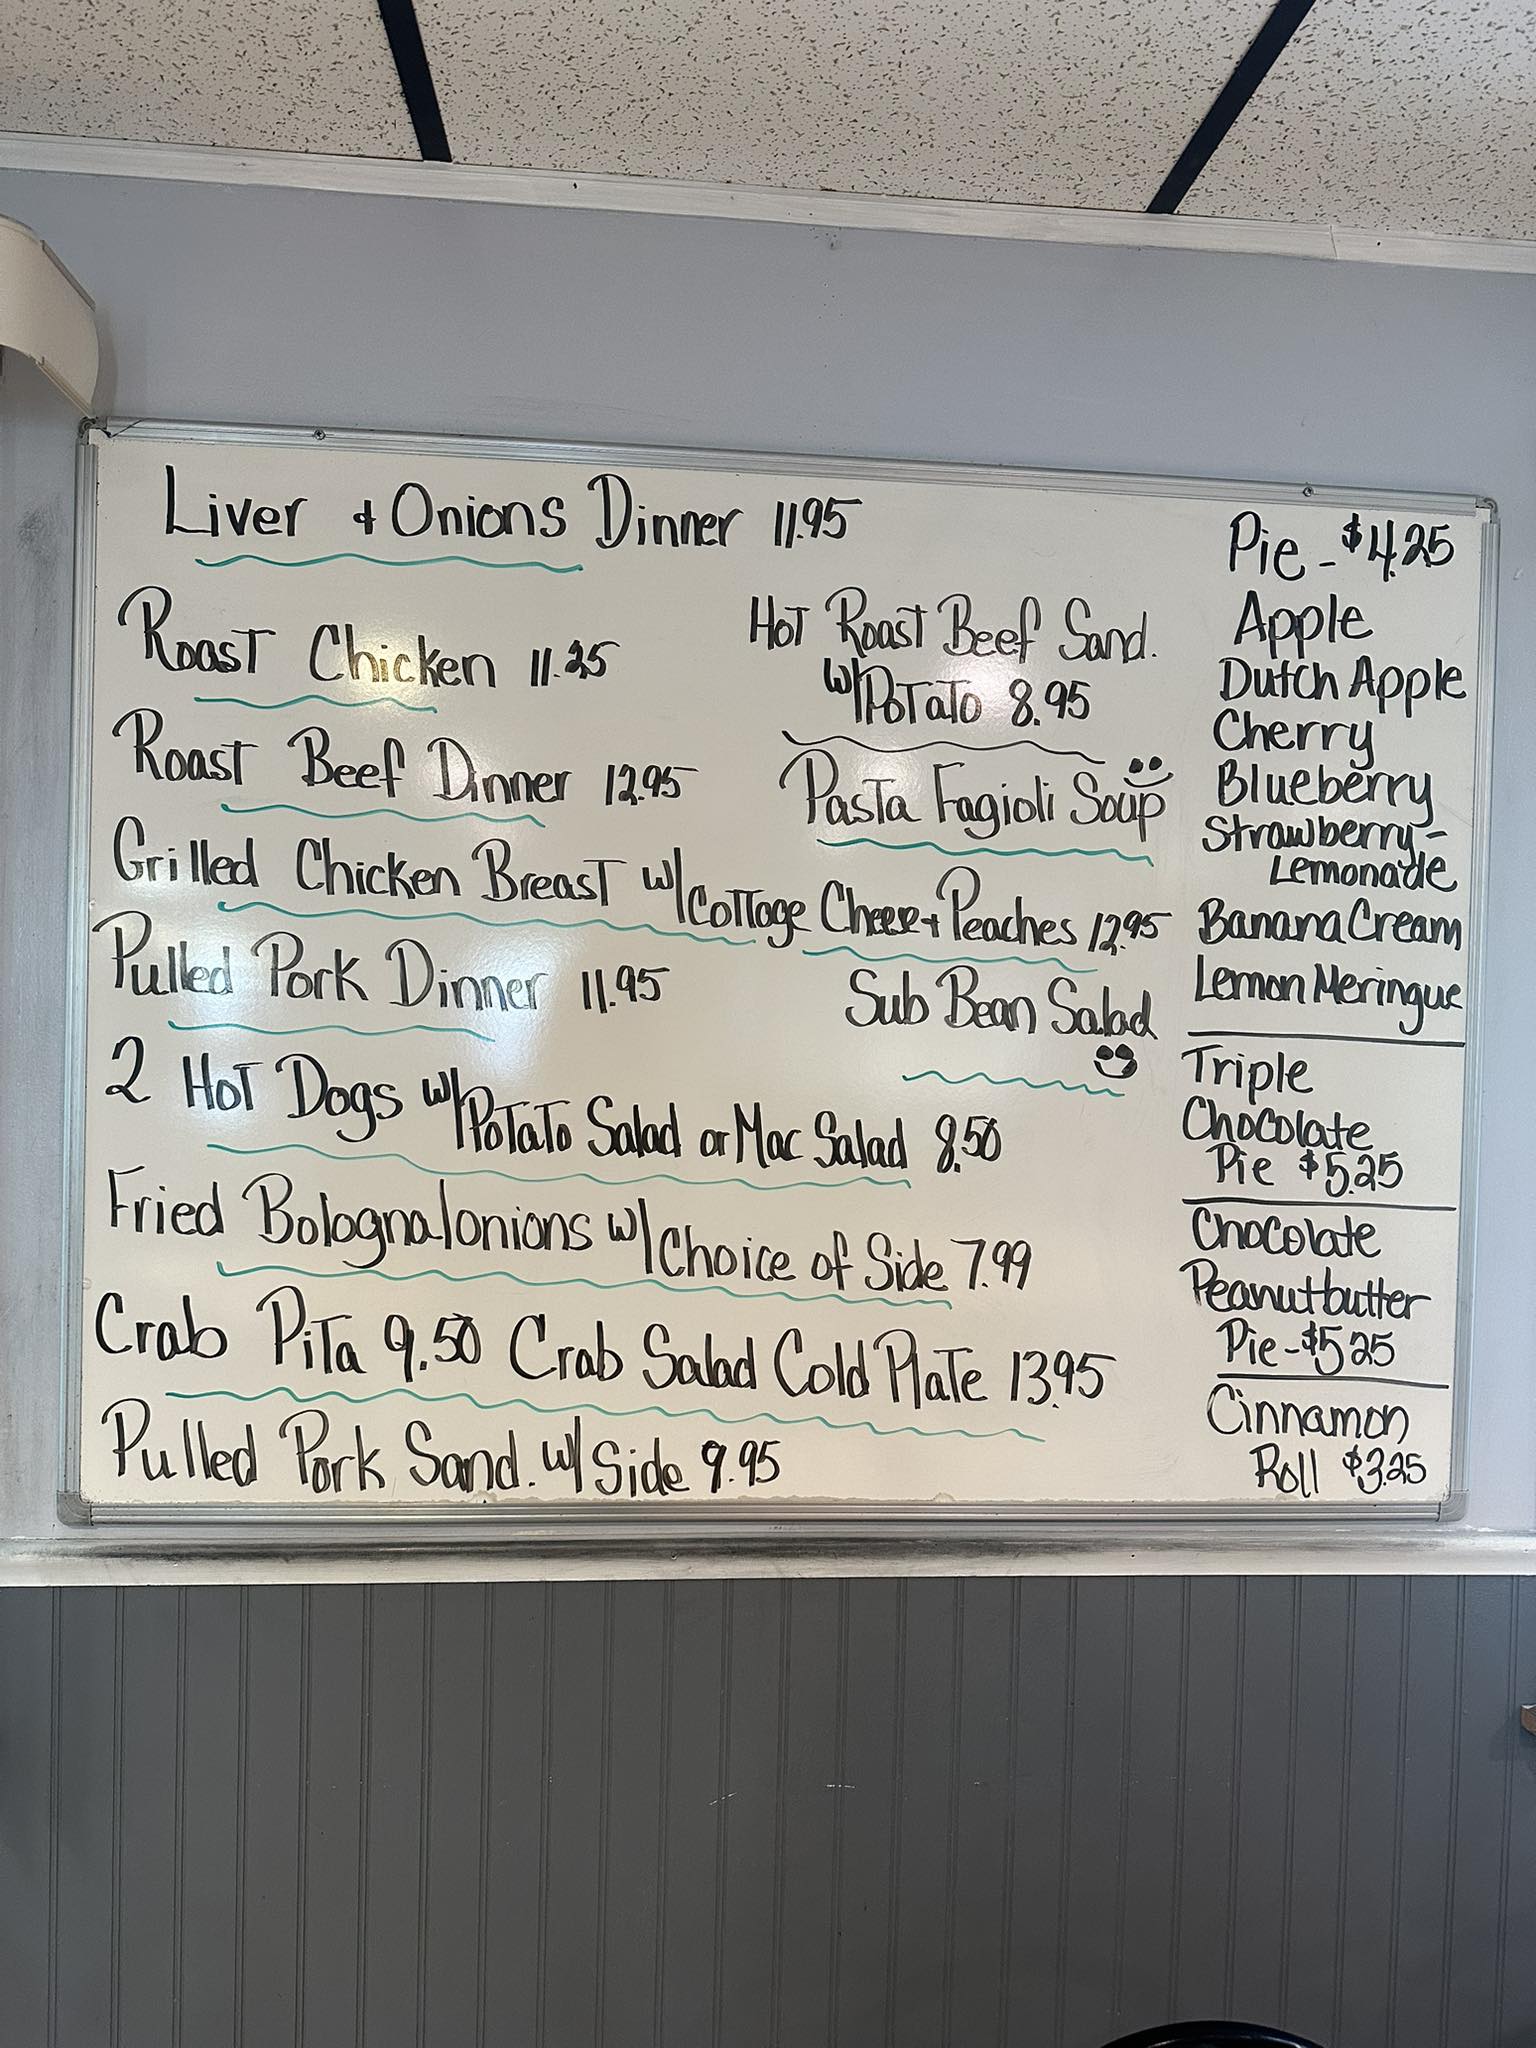 Liver & Onions Dinner 11.95
Roast Chicken 11.25
Roast Beef Dinner 12.95
Hot Roast Beef Sand.
w/Potato 8.95
Pasta Fagioli Soup
Grilled Chicken Breast w/Cottage Cheese + Peaches 12.95
Pulled Pork Dinner 11.95
Sub Bean Salad
2 Hot Dogs w/Potato Salad or Mac Salad 8.50
Fried Bologna/onions w/Choice of Side 7.99
Crab Pita 9.50 Crab Salad Cold Plate 13.95
Pulled Pork Sand. w/Side 9.95
Pie - $4.25
Apple
Dutch Apple
Cherry
Blueberry
Strawberry-
Lemonade
Banana Cream
Lemon Meringue
Triple
Chocolate
Pie $5.25
Chocolate
Peanutbutter
Pie - $5.25
Cinnamon
Roll $3.25